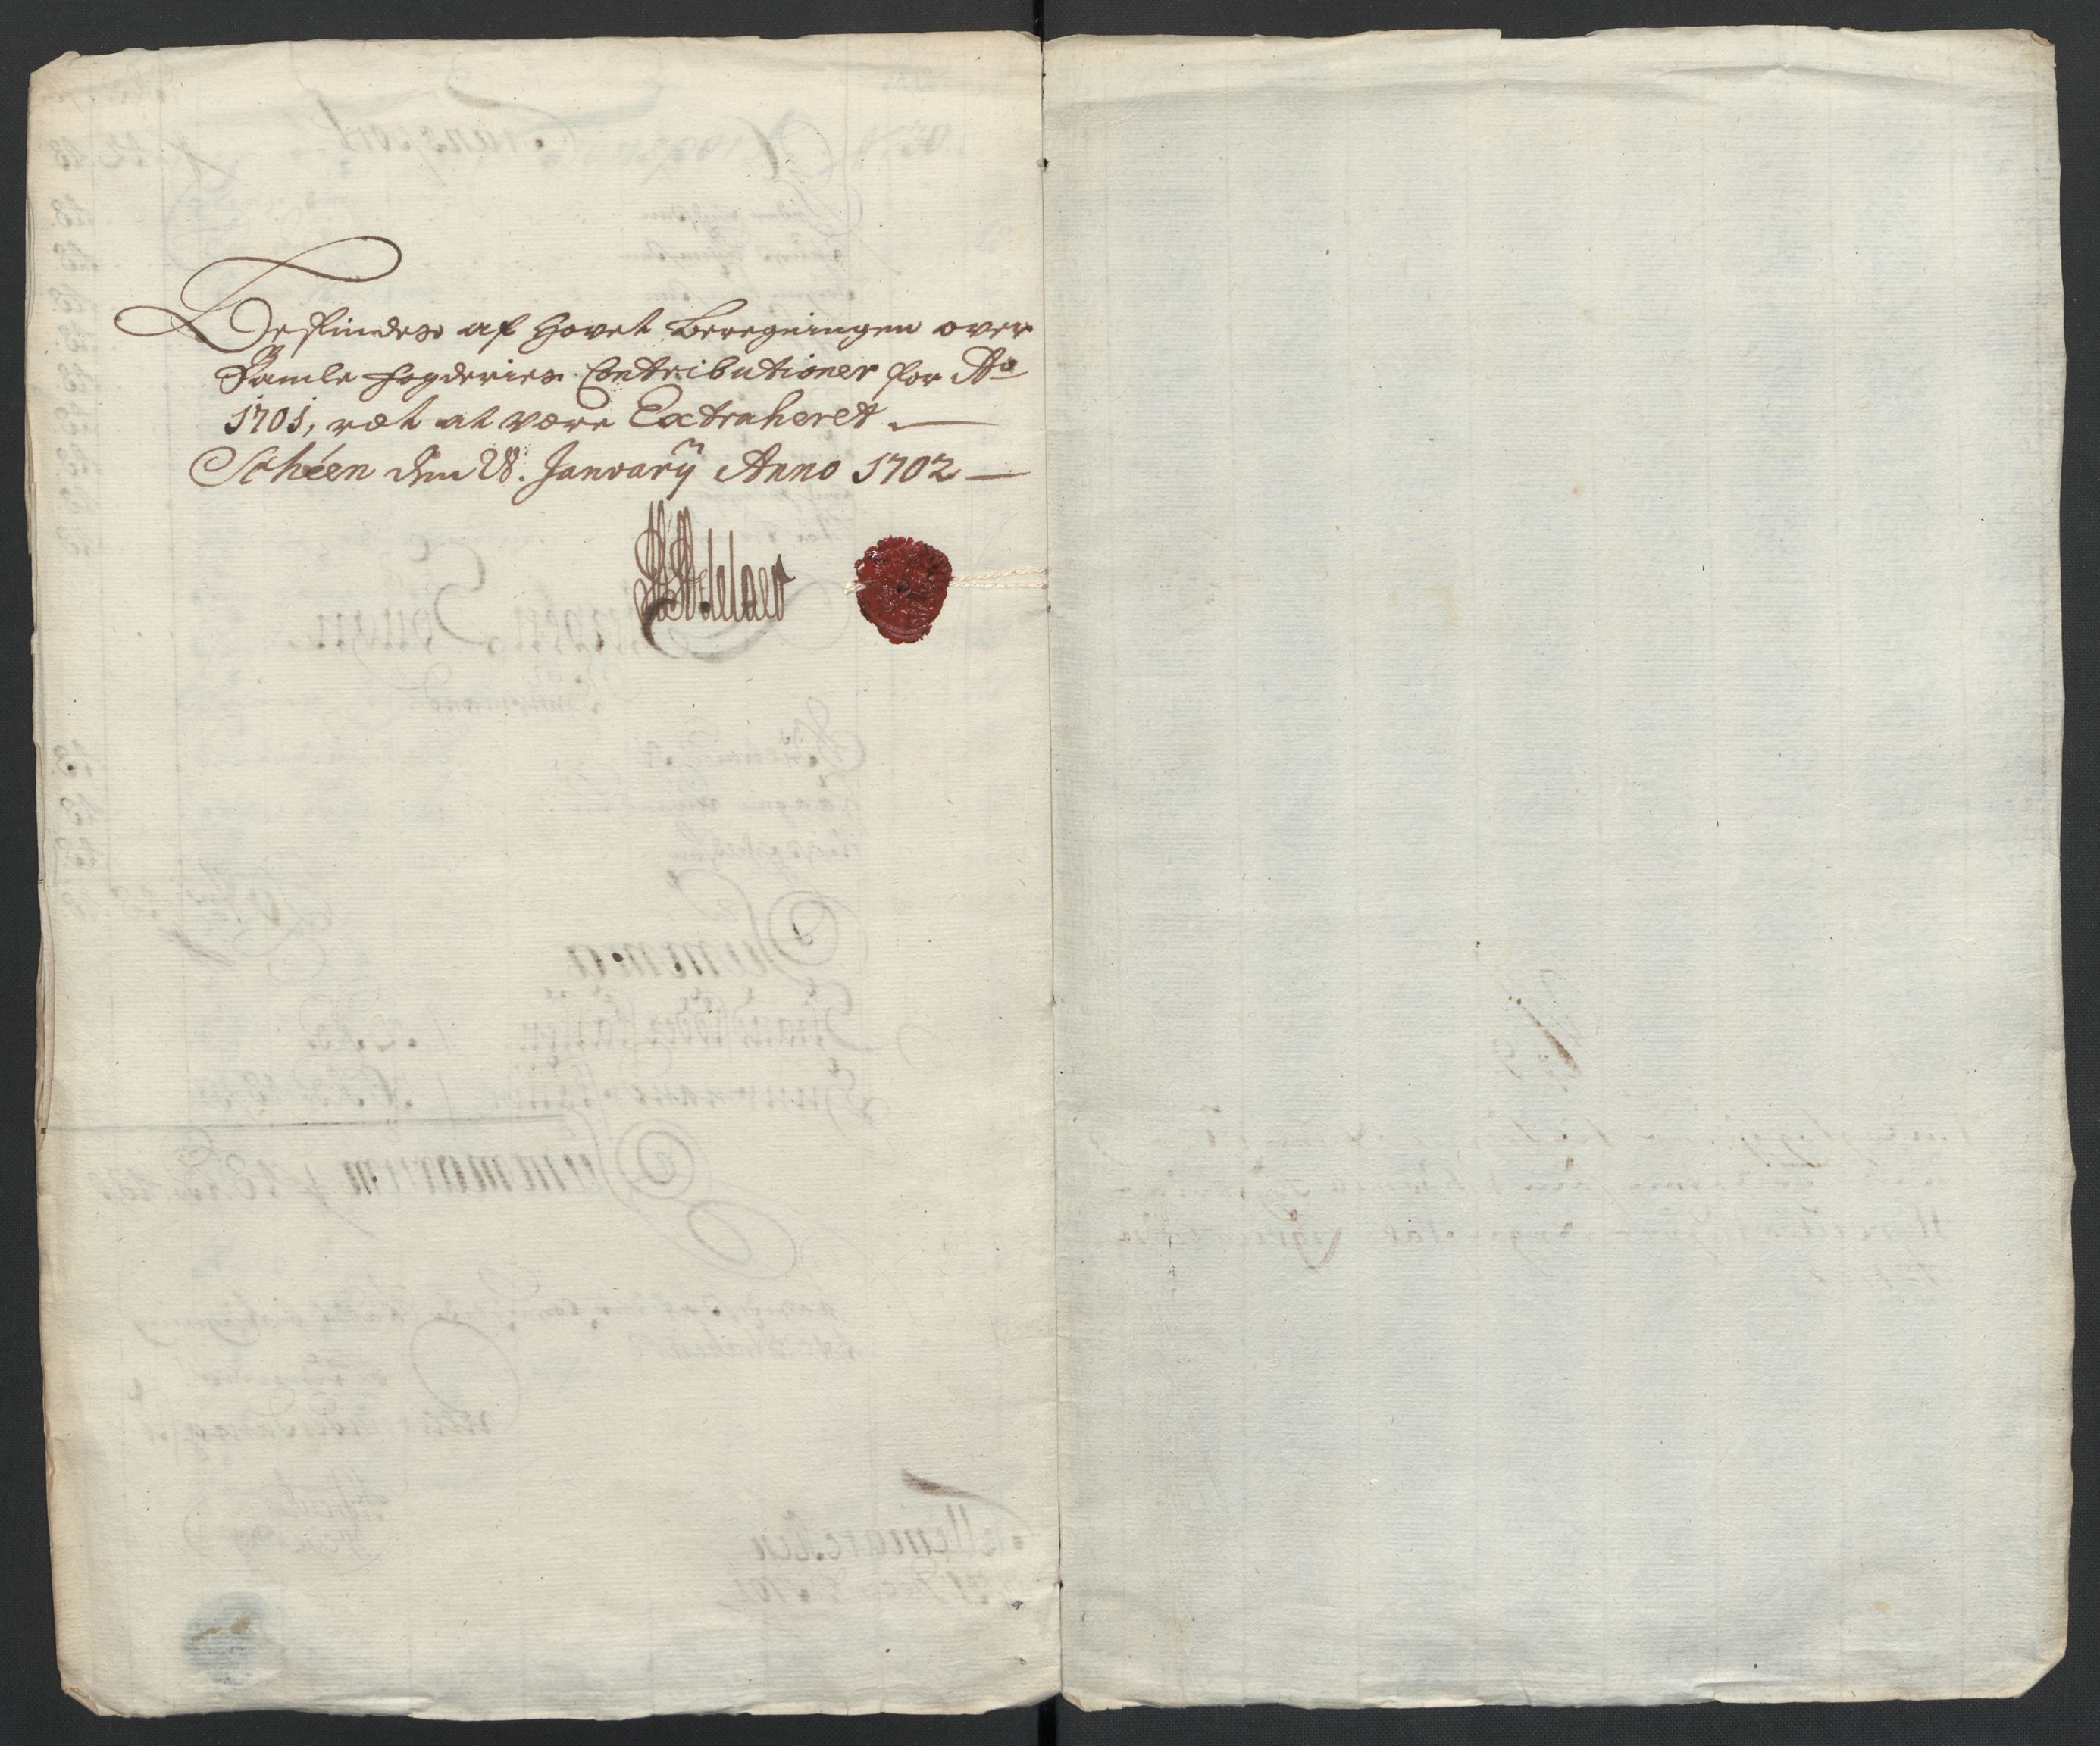 Befindes af hovet beregningen over
Bamle fogderies Contributioner for Ao
1701, ret at være Extraheret
Schéen den 28. Januarij Anno 1702
Adelaer